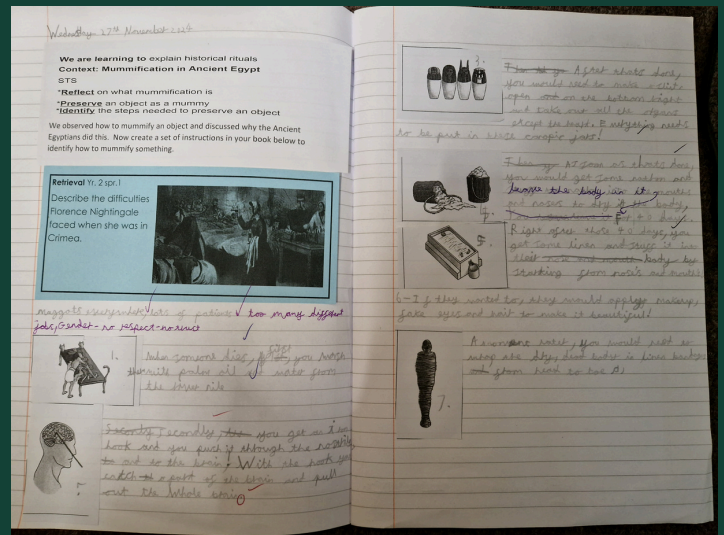 Wednesday 27th November 2024
We are learning to explain historical rituals
Context: Mummification in Ancient Egypt
STS
*Reflect on what mummification is
*Preserve an object as a mummy
*Identify the steps needed to preserve an object
We observed how to mummify an object and discussed why the Ancient
Egyptians did this. Now create a set of instructions in your book below to
identify how to mummify something.
Retrieval Yr. 2 spr.1
Describe the difficulties
Florence Nightingale
faced when she was in
Crimea.
maggots everywhere, lots of patients too many different
jobs, Gender - no respect - no trust
1.
When someone dies, first, you wash
with palm oil water from
the river nile
2.
Secondly Secondly, you get an
hook and you push it through the
to the brain. With the hook you
catch a part of the brain and pull
out the whole brain
3.
After thats done,
you would need to make a
open on the bottom right
and take out all the organs
except the heart. Everything needs
to be put in these canopic jars!
4.
As soon as thats done,
you would get some
because the body in it
and noses to dry the body,
for 40 days.
5.
Right after those 40 days, you
get some linen and stuff it in
their nose and mouth body by
stuffing from noses and mouth
6- If they wanted to, they would apply makeup,
fake eyes and hair to make it beautiful!
7.
A later, you would need to
wrap the dry, dead body in linen
from head to toe